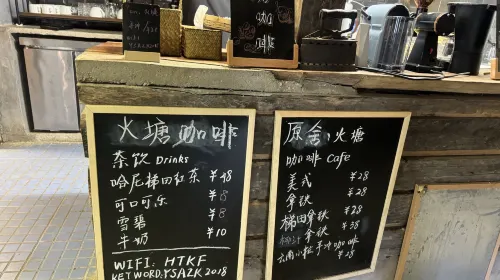 咖啡
火塘咖啡
茶饮 Drinks
哈尼梯田红茶 ¥48
可口可乐 ¥8
雪碧 ¥8
牛奶 ¥10
WIFI: HTKF
KEYWORD:YSAZK2018
原舍·火塘
咖啡 Cafe
美式 ¥28
拿铁 ¥28
梯田拿铁 ¥28
拿铁 ¥28
云南小粒手冲咖啡 ¥28